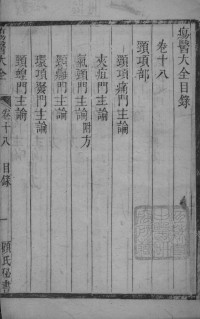 瘍醫大全目錄
卷十八
頸項部
頸項痛門主論
夾疽門主論
氣頸門主論附方
頸癰門主論
環項醫門主論
頸蝗門主論
瘍醫大全
卷十八 目錄
一
顧氏秘書